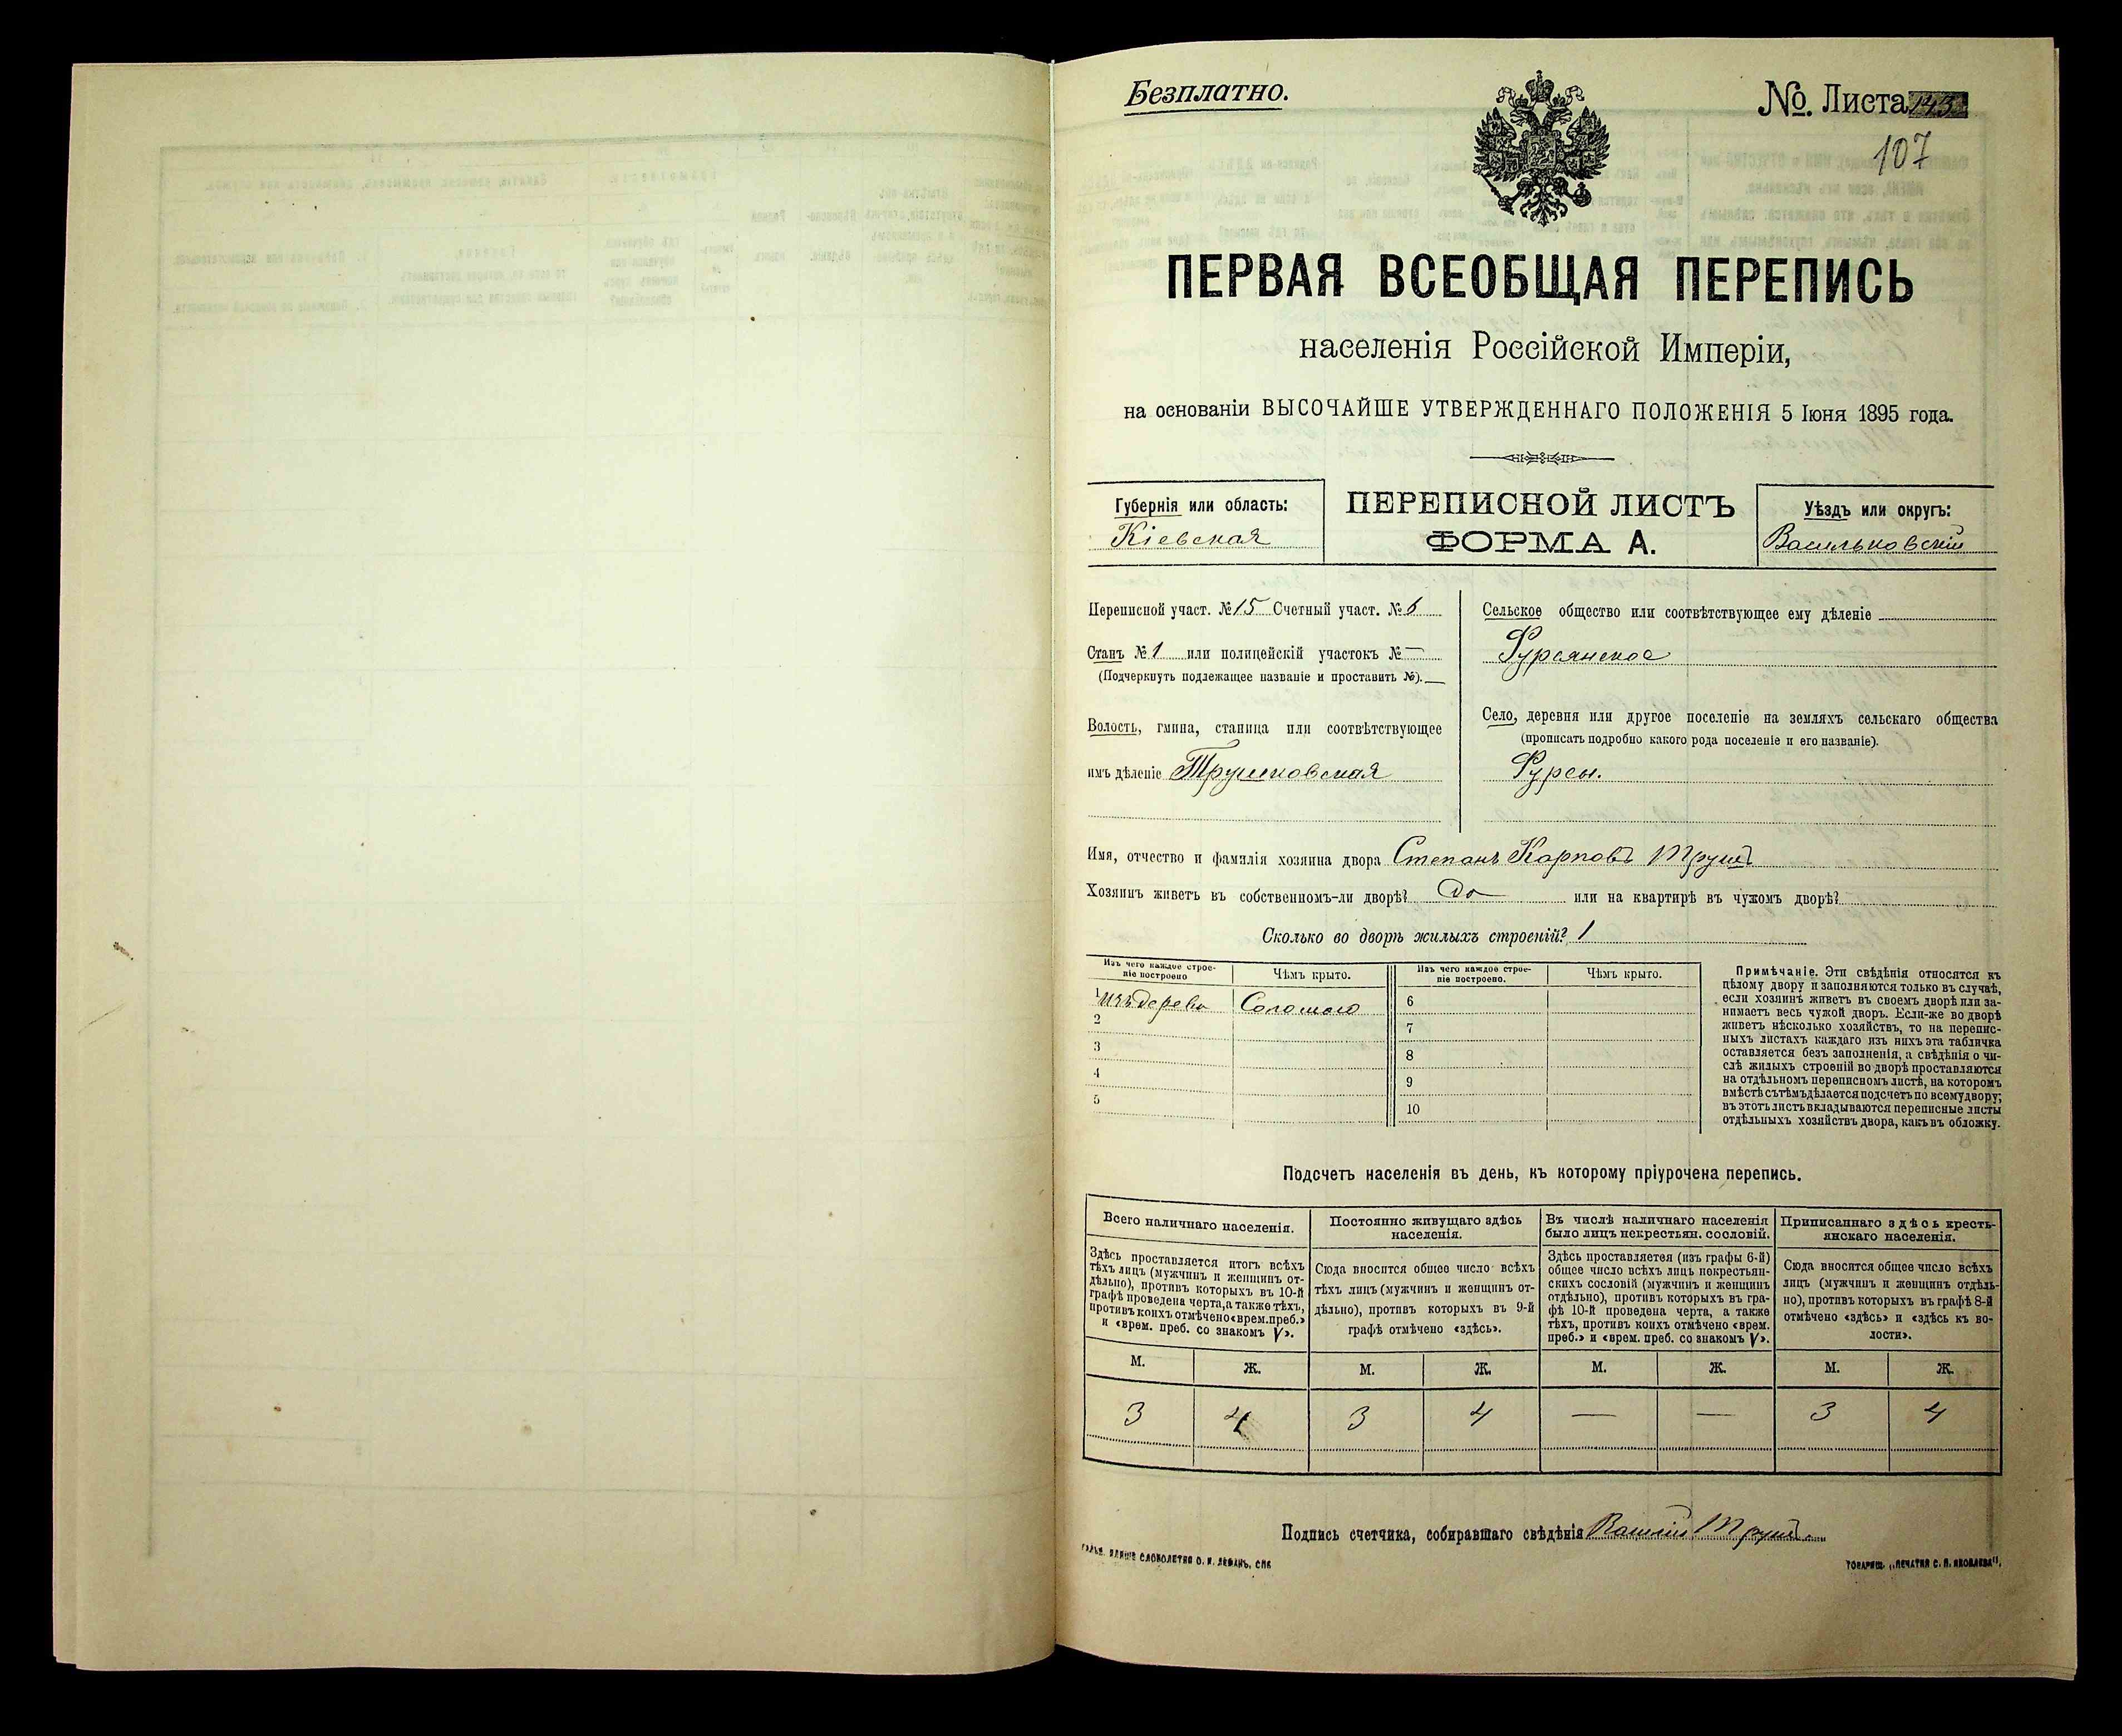 Безплатно.
№ Листа 143
107
ПЕРВАЯ ВСЕОБЩАЯ ПЕРЕПИСЬ
населенія Россійской Имперіи,
на основаніи ВЫСОЧАЙШЕ УТВЕРЖДЕННАГО ПОЛОЖЕНІЯ 5 Іюня 1895 года.
Губернія или область:
Кіевская
ПЕРЕПИСНОЙ ЛИСТЪ
ФОРМА А.
Уѣздъ или округъ:
Васильковскій
Переписной участ. № 15 Счетный участ. № 6
Станъ № 1 или полицейскій участокъ № —
(Подчеркнуть подлежащее названіе и проставить №).
Волость, гмина, станица или соотвѣтствующее
имъ дѣленіе Трушковская
Сельское общество или соотвѣтствующее ему дѣленіе
Фурсянское
Село, деревня или другое поселеніе на земляхъ сельскаго общества
(прописать подробно какого рода поселеніе и его названіе).
Фурсы.
Имя, отчество и фамилія хозяина двора Степанъ Карповъ Трушъ
Хозяинъ живетъ въ собственномъ-ли дворѣ? Да или на квартирѣ въ чужомъ дворѣ?
Сколько во дворѣ жилыхъ строеній? 1
Изъ чего каждое строе-
ніе построено
Чѣмъ крыто.
Изъ чего каждое строе-
ніе построено.
Чѣмъ крыто.
1 изъ дерева Соломою
2
3
4
5
6
7
8
9
10
Примѣчаніе. Эти свѣдѣнія относятся къ
цѣлому двору и заполняются только въ случаѣ,
если хозяинъ живетъ въ своемъ дворѣ или за-
нимаетъ весь чужой дворъ. Если-же во дворѣ
живетъ нѣсколько хозяйствъ, то на перепис-
ныхъ листахъ каждаго изъ нихъ эта табличка
оставляется безъ заполненія, а свѣдѣнія о чи-
слѣ жилыхъ строеній во дворѣ проставляются
на отдѣльномъ переписномъ листѣ, на которомъ
вмѣстѣ съ тѣмъ дѣлается подсчетъ по всему двору;
въ этотъ листъ вкладываются переписные листы
отдѣльныхъ хозяйствъ двора, какъ въ обложку.
Подсчетъ населенія въ день, къ которому пріурочена перепись.
Всего наличнаго населенія.
Здѣсь проставляется итогъ всѣхъ
тѣхъ лицъ (мужчинъ и женщинъ от-
дѣльно), противъ которыхъ въ 10-й
графѣ проведена черта, а также тѣхъ,
противъ коихъ отмѣчено «врем. преб.»
и «врем. преб. со знакомъ V».
Постоянно живущаго здѣсь
населенія.
Сюда вносится общее число всѣхъ
тѣхъ лицъ (мужчинъ и женщинъ от-
дѣльно), противъ которыхъ въ 9-й
графѣ отмѣчено «здѣсь».
Въ числѣ наличнаго населенія
было лицъ некрестьян. сословій.
Здѣсь проставляется (изъ графы 6-й)
общее число всѣхъ лицъ некрестьян-
скихъ сословій (мужчинъ и женщинъ
отдѣльно), противъ которыхъ въ гра-
фѣ 10-й проведена черта, а также
тѣхъ, противъ коихъ отмѣчено «врем.
преб.» и «врем. преб. со знакомъ V».
Приписаннаго здѣсь кресть-
янскаго населенія.
Сюда вносится общее число всѣхъ
лицъ (мужчинъ и женщинъ отдѣль-
но), противъ которыхъ въ графѣ 8-й
отмѣчено «здѣсь» и «здѣсь къ во-
лости».
М. Ж. М. Ж. М. Ж. М. Ж.
3 4 3 4 — — 3 4
Подпись счетчика, собиравшаго свѣдѣнія Василій Трушъ
СЛОВОЛИТНЯ О. И. ЛЕМАНЪ, СПБ
ТОВАРИЩ. „ПЕЧАТНЯ С. П. ЯКОВЛЕВА“.